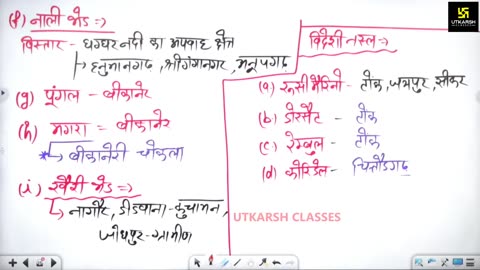 (f) नाली भेड ⇒
विस्तार - घग्घर नदी का अपवाह क्षेत्र
↳ हनुमानगढ, श्रीगंगानगर, अनूपगढ
(g) पूंगल - बीकानेर
(h) मगरा = बीकानेर
* ↳ बीकानेरी चोकला
(i) खैरी भेड ⇒
↳ नागौर, डीडवाना - कुचामन,
जोधपुर - ग्रामीण
विदेशी नस्ल ⇒
(a) रूसी मैरिनो - टोंक, जयपुर, सीकर
(b) डोर्सेट - टोंक
(c) रेम्बुल - टोंक
(d) कोरिडेल - चित्तौडगढ
UTKARSH CLASSES
UTKARSH